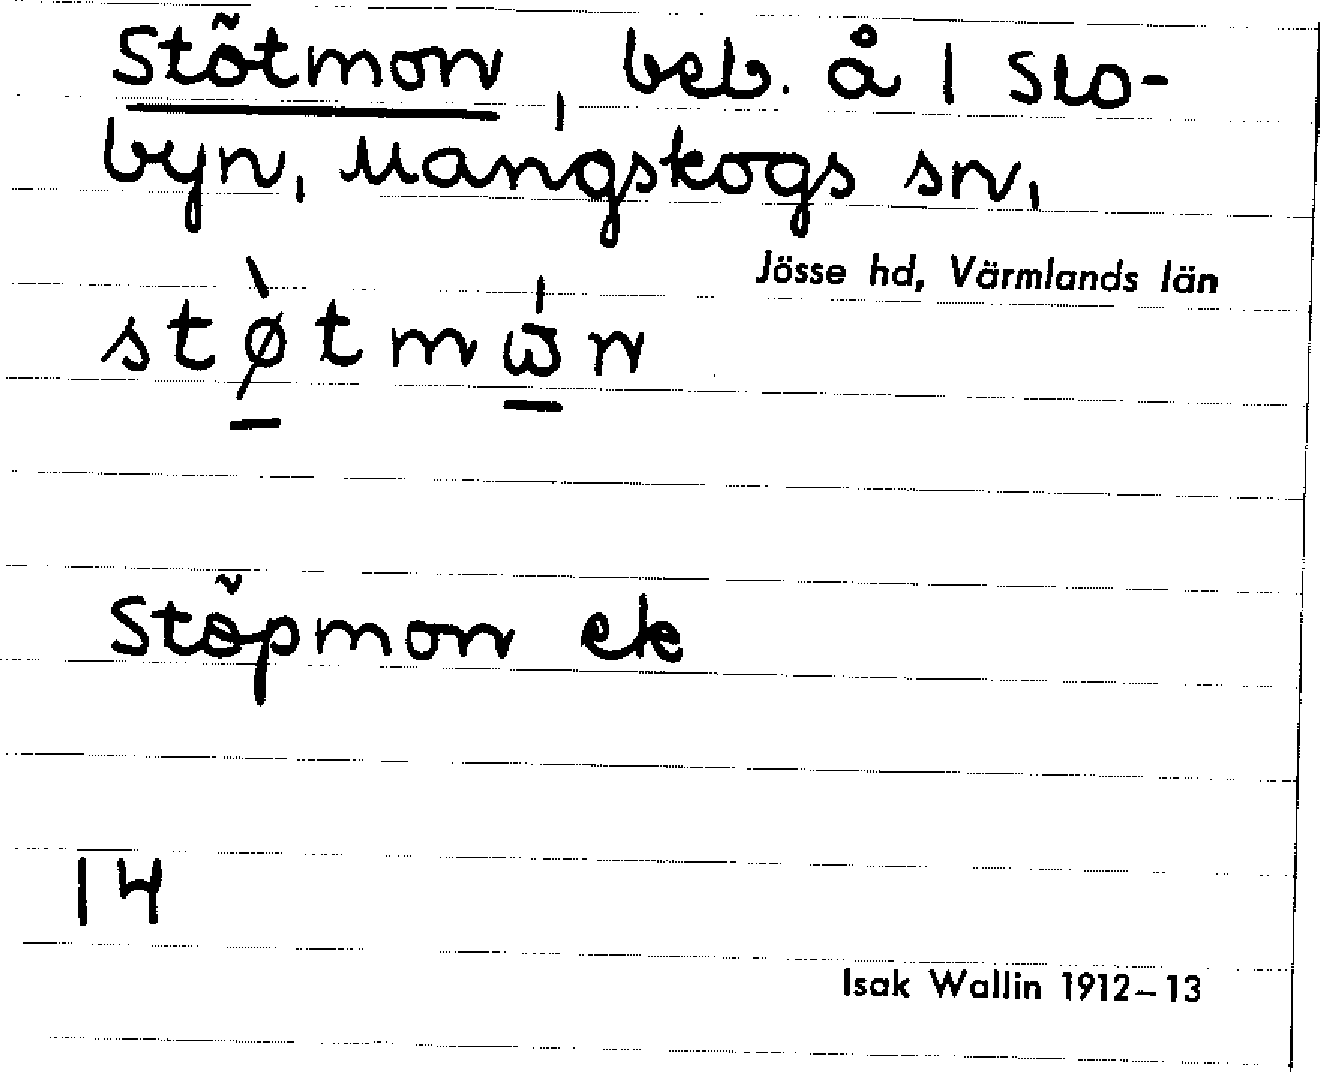 Stötmon, beb. å 1 Slo-
byn, Mangskogs sn,
Jösse hd, Värmlands län
støtmὼn
Stöpmon ek
14
Isak Wallin 1912–13